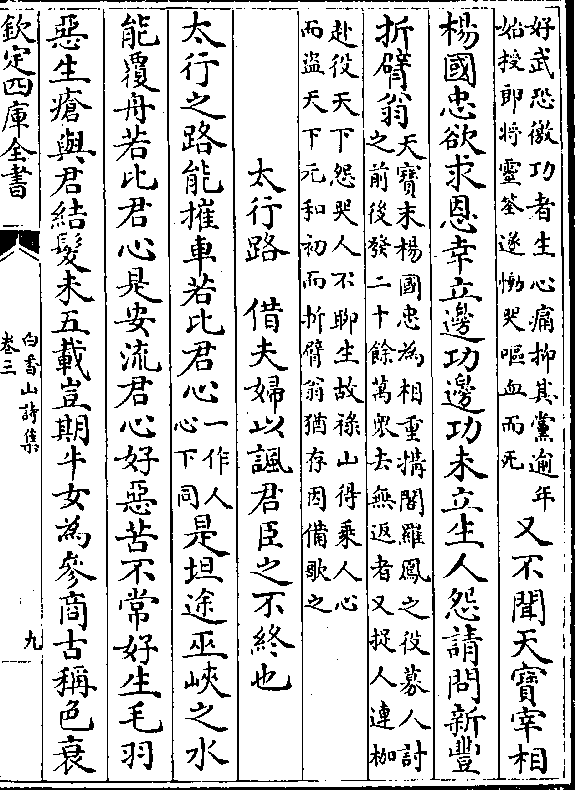 好武恐徼功者生心痛抑其黨逾年
始授郎將靈筌遂慟哭嘔血而死
又不聞天寶宰相
楊國忠欲求恩幸立邊功邊功未立生人怨請問新豐
折臂翁
天寶末楊國忠為相重搆閣羅鳳之役募人討
之前後發二十餘萬眾去無返者又捉人連枷
赴役天下怨哭人不聊生故祿山得乘人心
而盜天下元和初而折臂翁猶存因備歌之
太行路　借夫婦以諷君臣之不終也
太行之路能摧車若比君心
一作人
心下同
是坦途巫峽之水
能覆舟若比君心是安流君心好惡苦不常好生毛羽
惡生瘡與君結髮未五載豈期牛女為參商古稱色衰
欽定四庫全書
白香山詩集
卷三
九